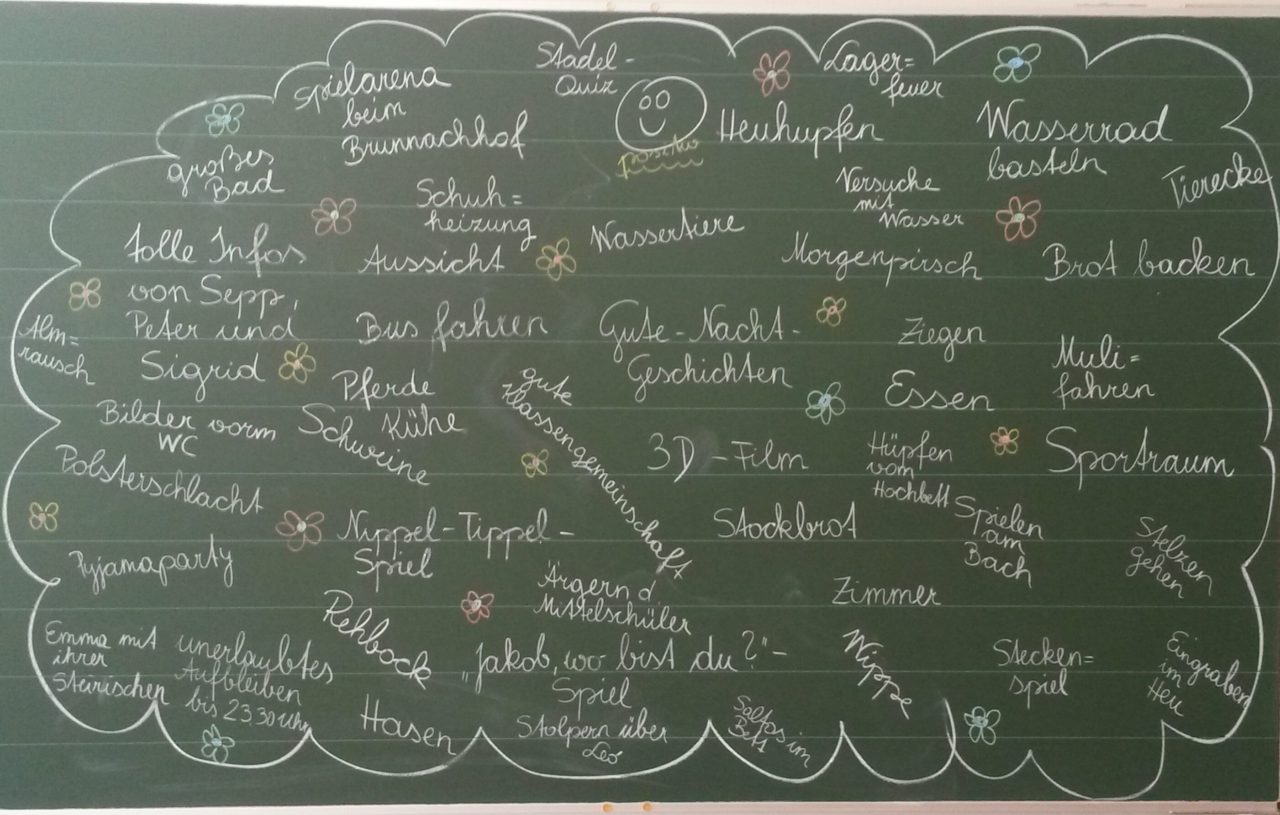 Spielarena
beim
Brunnachhof
Stadel-
Quiz
positiv
Heuhupfen
Lager=
feuer
Wasserrad
basteln
Tierecke
großes
Bad
Schuh=
heizung
Wassertiere
Versuche
mit
Wasser
tolle Infos
von Sepp,
Peter und
Sigrid
Aussicht
Morgenpirsch
Brot backen
Alm=
rausch
Bus fahren
Gute-Nacht-
Geschichten
Ziegen
Muli=
fahren
Pferde
Kühe
Schweine
gute
Klassengemeinschaft
Essen
Bilder vorm
WC
3D-Film
Hüpfen
vom
Hochbett
Sportraum
Polsterschlacht
Nippel-Tippel-
Spiel
Stockbrot
Spielen
am
Bach
Stelzen
gehen
Pyjamaparty
Ärgern d
Mittelschüler
Zimmer
Rehbock
Emma mit
ihrer
Steirischen
unerlaubtes
Aufbleiben
bis 23 30 Uhr
„Jakob, wo bist du?"-
Spiel
Wippe
Stecken=
spiel
Eingraben
im
Heu
Hasen
Stolpern über
Leo
Saltos im
Bett